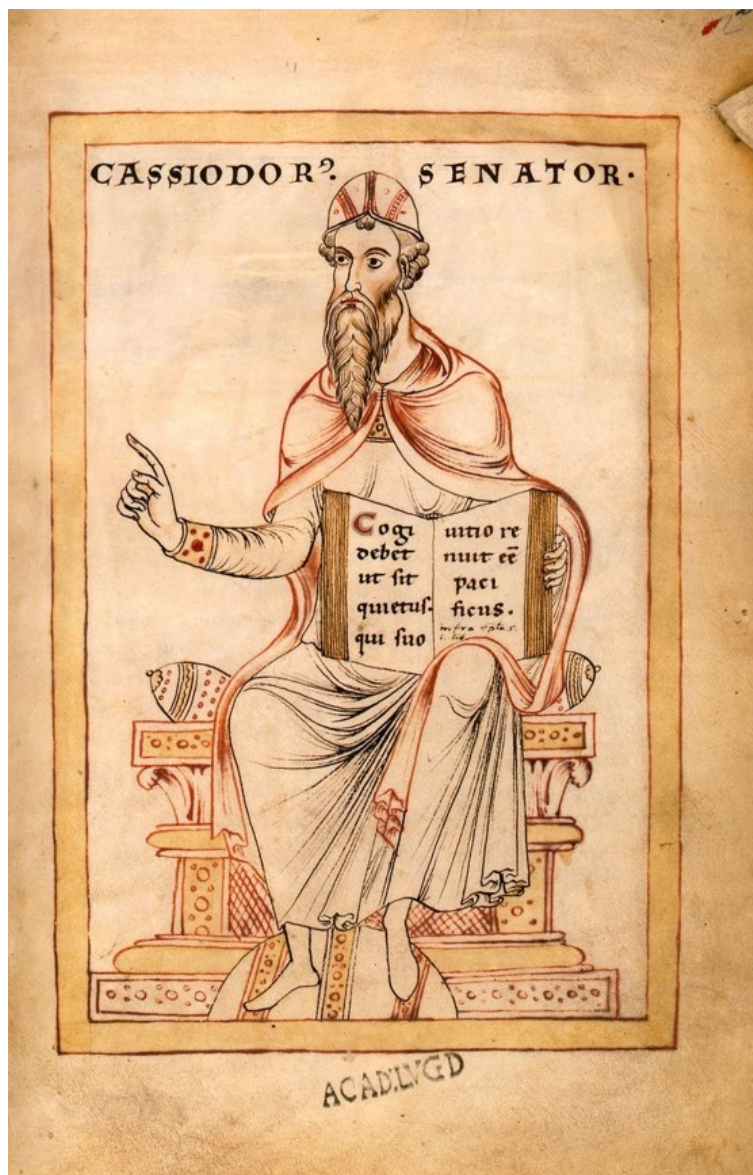 CASSIODORꝰ. SENATOR.
Cogi
debet
ut sit
quietus.
qui suo
uitio re
nuit eē
paci
ficus.
ACAD. LVGD